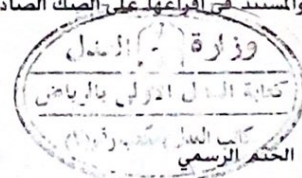 والمستند في افراغها على الصك الصاد
وزارة العدل
كتابة العدل الاولى بالرياض
كاتب العدل
الختم الرسمي